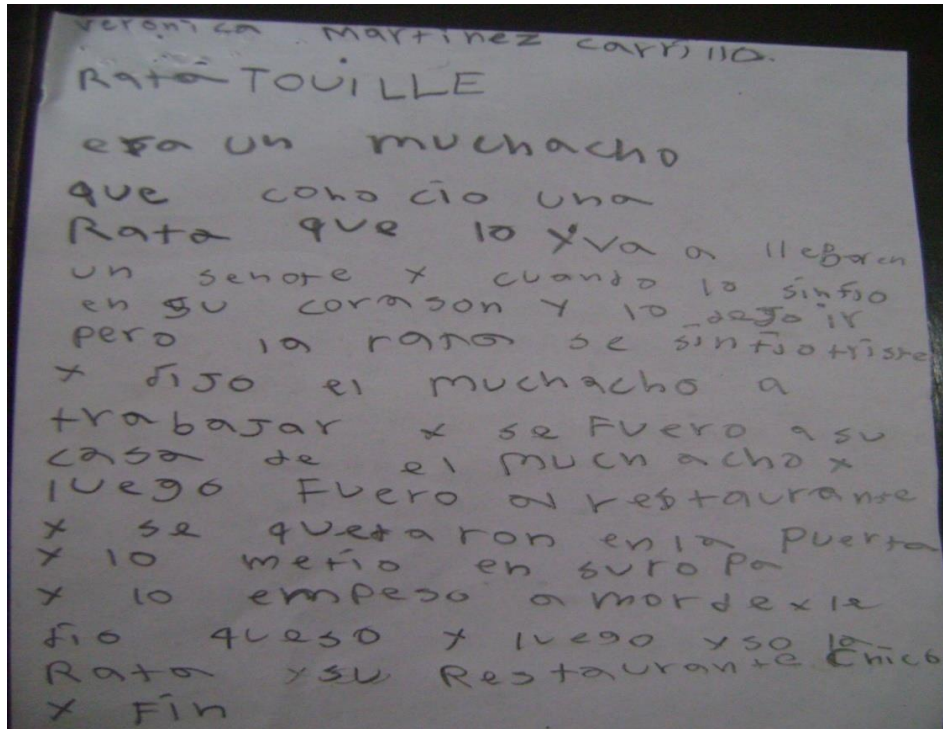 veronica Martinez carrillo.
Rata TOUILLE
era un muchacho
que conocio una
Rata que lo yva a llegar en
un senore y cuando lo sintio
en su corason y lo dejo ir
pero la rata se sintio triste
y dijo el muchacho a
trabajar y se Fuero a su
casa de el muchacho y
luego Fuero al restaurante
y se quetaron en la puerta
y lo metio en su ropa
y lo empeso a morder y le
dio queso y luego yso la
Rata y su Restaurante chico
y Fin